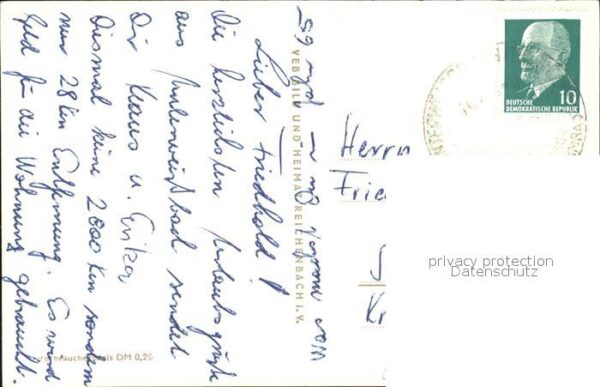 Lieber Friedhold!
Die herzlichsten Urlaubsgrüße
aus sendet
Dir Klaus u. Erika
Diesmal keine 2000 km sondern
nur 28 km Entfernung. Es wird
Geld für die Wohnung gebraucht.
VEB BILD UND HEIMAT REICHENBACH i. V.
Verbraucherpreis DM 0,20
DEUTSCHE
DEMOKRATISCHE REPUBLIK
10
Herrn
Frie
Kr
privacy protection
Datenschutz